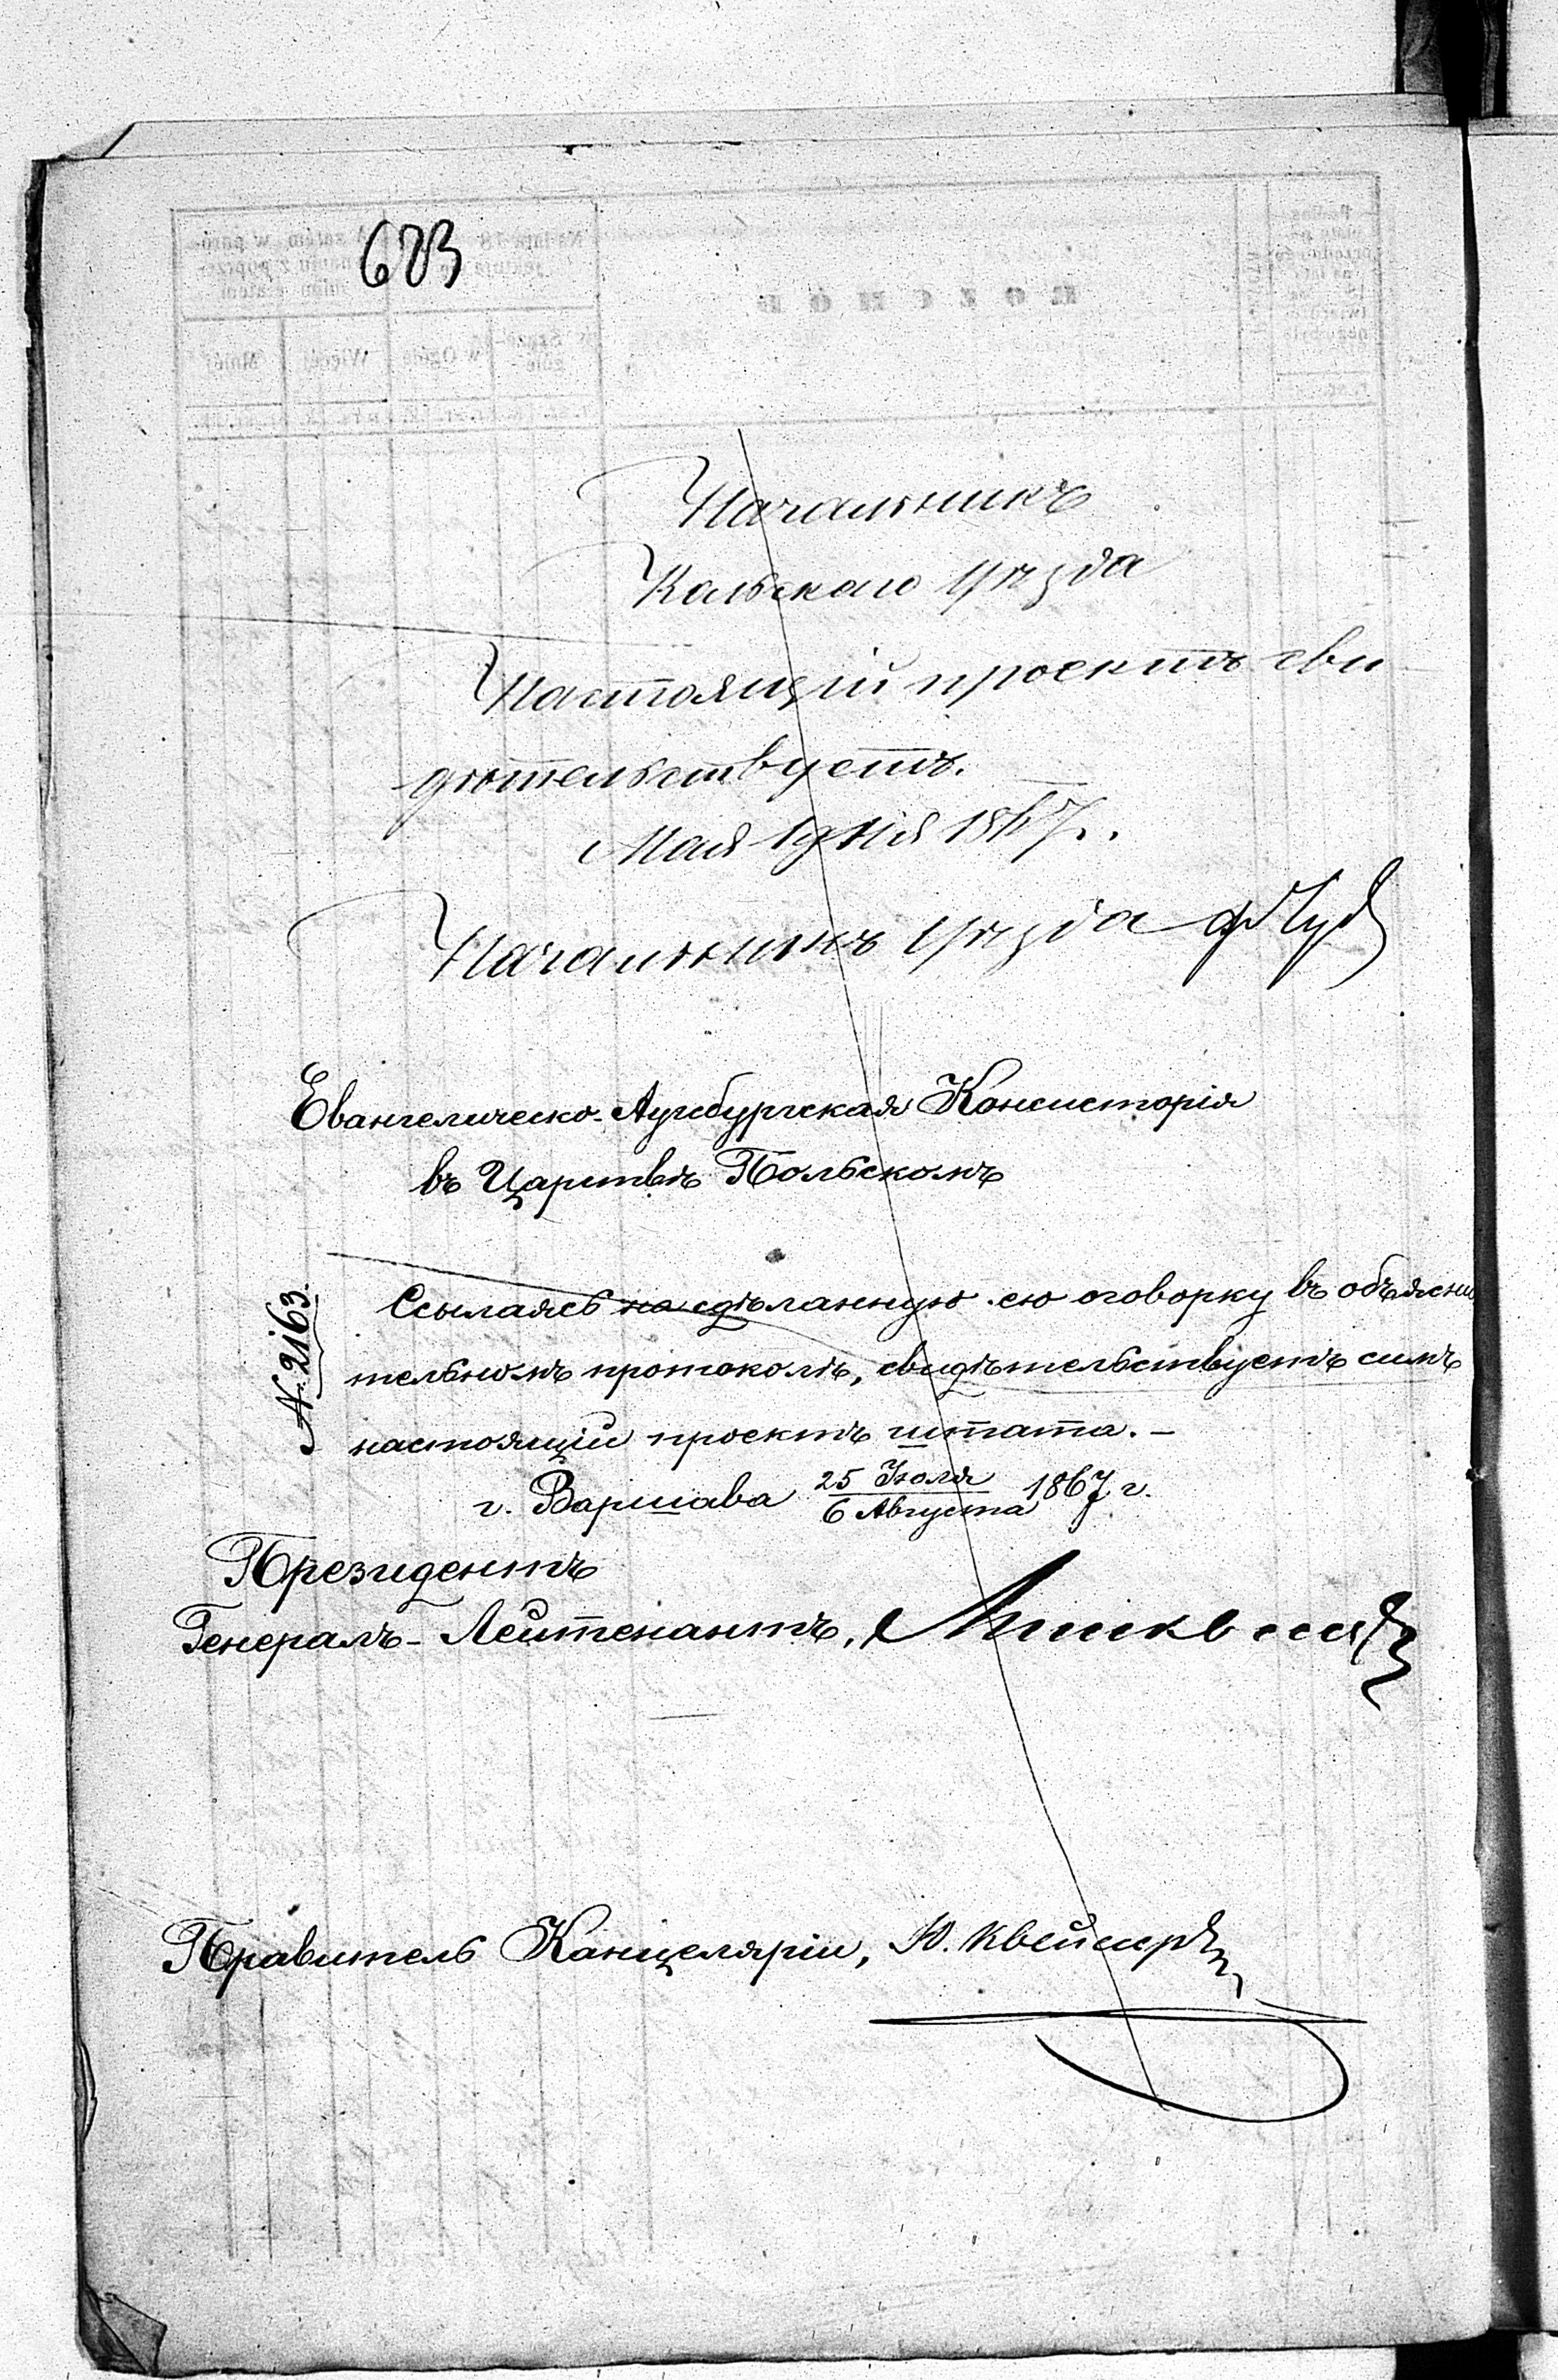 683
Начальникъ
Кольскаго Уѣзда
Настоящій проектъ сви
дѣтельствуетъ.
Мая 19 дня 1867 г.
Начальникъ Уѣзда
Евангелическо-Аугсбургская Консисторія
въ Царствѣ Польскомъ
№ 2163.
Ссылаясь на сдѣланную ею оговорку въ объясни
тельномъ протоколѣ, свидѣтельствуетъ симъ
настоящій проектъ штата. –
г. Варшава 25 Іюля / 6 Августа 1867 г.
Президентъ
Генералъ-Лейтенантъ,
Правитель Канцеляріи, Ю.